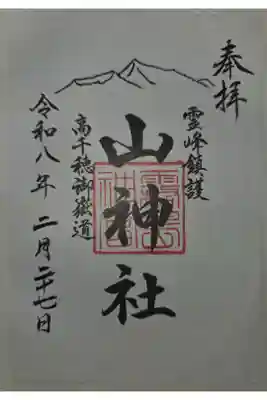 奉拝
霊峰鎮護
山神社
高千穂御嶽道
令和八年二月二十七日